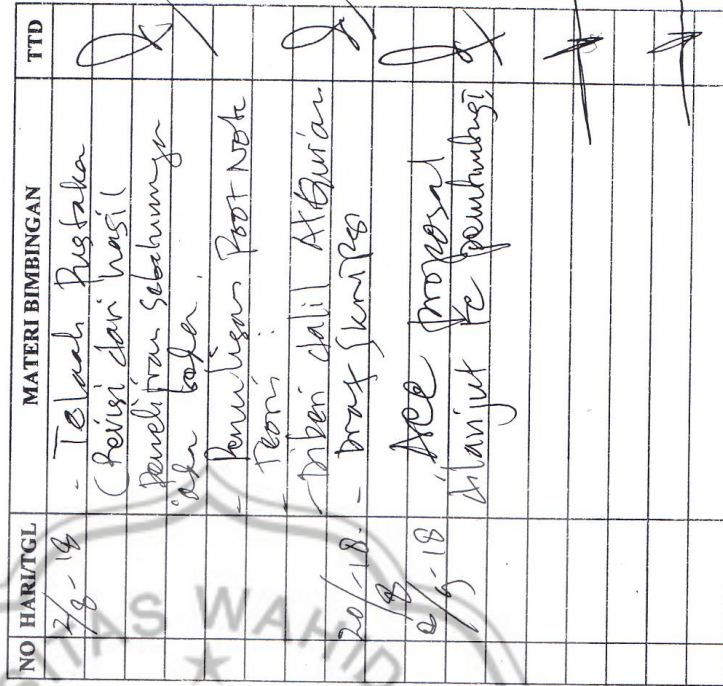 NO HARI/TGL MATERI BIMBINGAN TTD
2/8-18 - Telaah Pustaka
(Revisi dari hasil
Penelitian sebelumnya
- Penulisan Foot Note
Teori
- Diberi dalil Al Qur'an
20/8-18. -
6/9-18 Acc Proposal
dilanjut ke pembimbing
ITAS WAHID